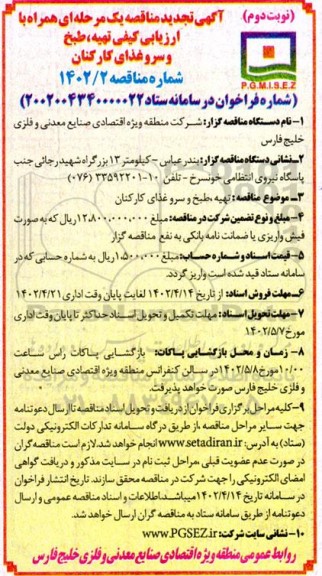 (نوبت دوم).
آگهی تجدید مناقصه یک مرحله ای همراه با
ارزیابی کیفی تهیه، طبخ
و سرو غذای کارکنان
شماره مناقصه ۱۴۰۲/۲
P.G.M.I.S.E.Z
(شماره فراخوان در سامانه ستاد ۲۰۰۲۰۰۴۳۴۰۰۰۰۰۲۲)
۱- نام دستگاه مناقصه گزار: شرکت منطقه ویژه اقتصادی صنایع معدنی و فلزی
خلیج فارس
۲- نشانی دستگاه مناقصه گزار: بندرعباس - کیلومتر ۱۳ بزرگراه شهید رجائی جنب
پاسگاه نیروی انتظامی خونسرخ - تلفن ۱۰-۳۳۵۹۲۲۰۱ (۰۷۶)
۳- موضوع مناقصه : تهیه، طبخ و سرو غذای کارکنان
۴- مبلغ و نوع تضمین شرکت در مناقصه: مبلغ ۱۲،۸۰۰،۰۰۰،۰۰۰ ریال که به صورت
فیش واریزی یا ضمانت نامه بانکی به نفع مناقصه گزار
۵- قیمت اسناد و شماره حساب: مبلغ ۱،۵۰۰،۰۰۰ ریال به شماره حسابی که در
سامانه ستاد قید شده است واریز گردد.
۶- مهلت فروش اسناد: از تاریخ ۱۴۰۲/۴/۱۴ لغایت پایان وقت اداری ۱۴۰۲/۴/۲۱
۷- مهلت تحویل اسناد: مهلت تکمیل و تحویل اسناد حداکثر تا پایان وقت اداری
مورخ ۱۴۰۲/۵/۷
۸- زمان و محل بازگشایی پاکات: بازگشایی پاکات راس ساعت
۱۰/۰۰ مورخ ۱۴۰۲/۵/۸ در سالن کنفرانس منطقه ویژه اقتصادی صنایع معدنی
و فلزی خلیج فارس صورت خواهد پذیرفت.
۹- کلیه مراحل برگزاری فراخوان از دریافت و تحویل اسناد مناقصه تا ارسال دعوتنامه
جهت سایر مراحل مناقصه از طریق درگاه سامانه تدارکات الکترونیکی دولت
(ستاد) به آدرس: www.setadiran.ir انجام خواهد شد. لازم است مناقصه گران
در صورت عدم عضویت قبلی مراحل ثبت نام در سایت مذکور و دریافت گواهی
امضای الکترونیکی را جهت شرکت در مناقصه محقق سازند. تاریخ انتشار فراخوان
در سامانه تاریخ ۱۴۰۲/۴/۱۴ میباشد. اطلاعات و اسناد مناقصه عمومی و ارسال
دعوتنامه از طریق سامانه ستاد به مناقصه گران ارسال خواهد شد.
۱۰- نشانی سایت شرکت: www.PGSEZ.ir
روابط عمومی منطقه ویژه اقتصادی صنایع معدنی و فلزی خلیج فارس